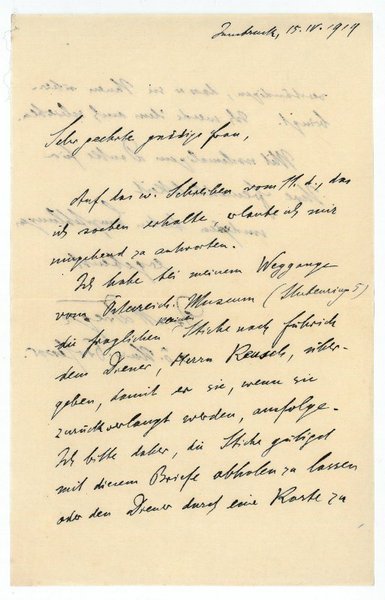 Innsbruck, 15. IV. 1919
Sehr geehrte gnädige Frau,
Auf das w. Schreiben vom 11. d., das
ich soeben erhalte, erlaube ich mir
umgehend zu antworten.
Ich habe bei meinem Weggange
vom Österreich. Museum (Stubenring 5)
die fraglichen Stiche nach Führich
dem Diener, Herrn Reusch, über-
geben, damit er sie, wenn sie
zurückverlangt werden, ausfolge.
Ich bitte daher, die Stiche gütigst
mit diesem Briefe abholen zu lassen
oder den Diener durch eine Karte zu